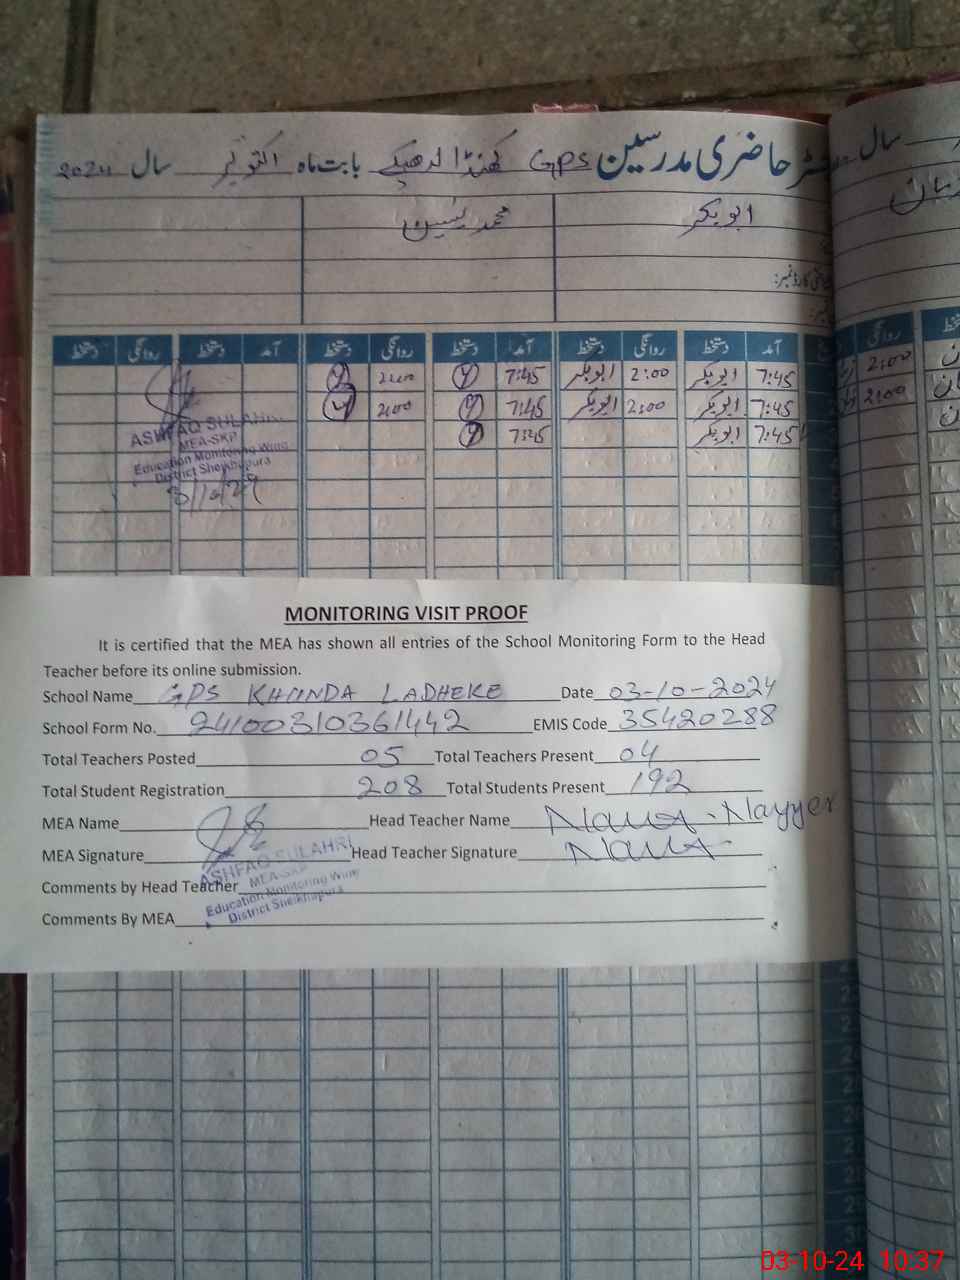 رجسٹر حاضری مدرسین GPS کھنڈا لدھیکے بابت ماہ اکتوبر سال 2024
سال
ابوبکر محمد یٰسین
آمد دستخط روانگی دستخط آمد دستخط روانگی دستخط آمد دستخط روانگی دستخط
7:45 ابوبکر 2:00 ابوبکر 7:45 2:00
7:45 ابوبکر 2:00 ابوبکر 7:45 2:00
7:45 ابوبکر 7:45
روانگی
2:00
2:00
ASHFAQ SULAHRI
MEA-SKP
Education Monitoring Wing
District Sheikhupura
3/10/24
MONITORING VISIT PROOF
It is certified that the MEA has shown all entries of the School Monitoring Form to the Head
Teacher before its online submission.
School Name GPS KHUNDA LADHEKE Date 03-10-2024
School Form No. 24100310361442 EMIS Code 35420288
Total Teachers Posted 05 Total Teachers Present 04
Total Student Registration 208 Total Students Present 192
MEA Name Head Teacher Name Nayyer
MEA Signature Head Teacher Signature
ASHFAQ SULAHRI
Comments by Head Teacher MEA-SKP
Education Monitoring Wing
Comments By MEA District Sheikhupura
03-10-24 10:37